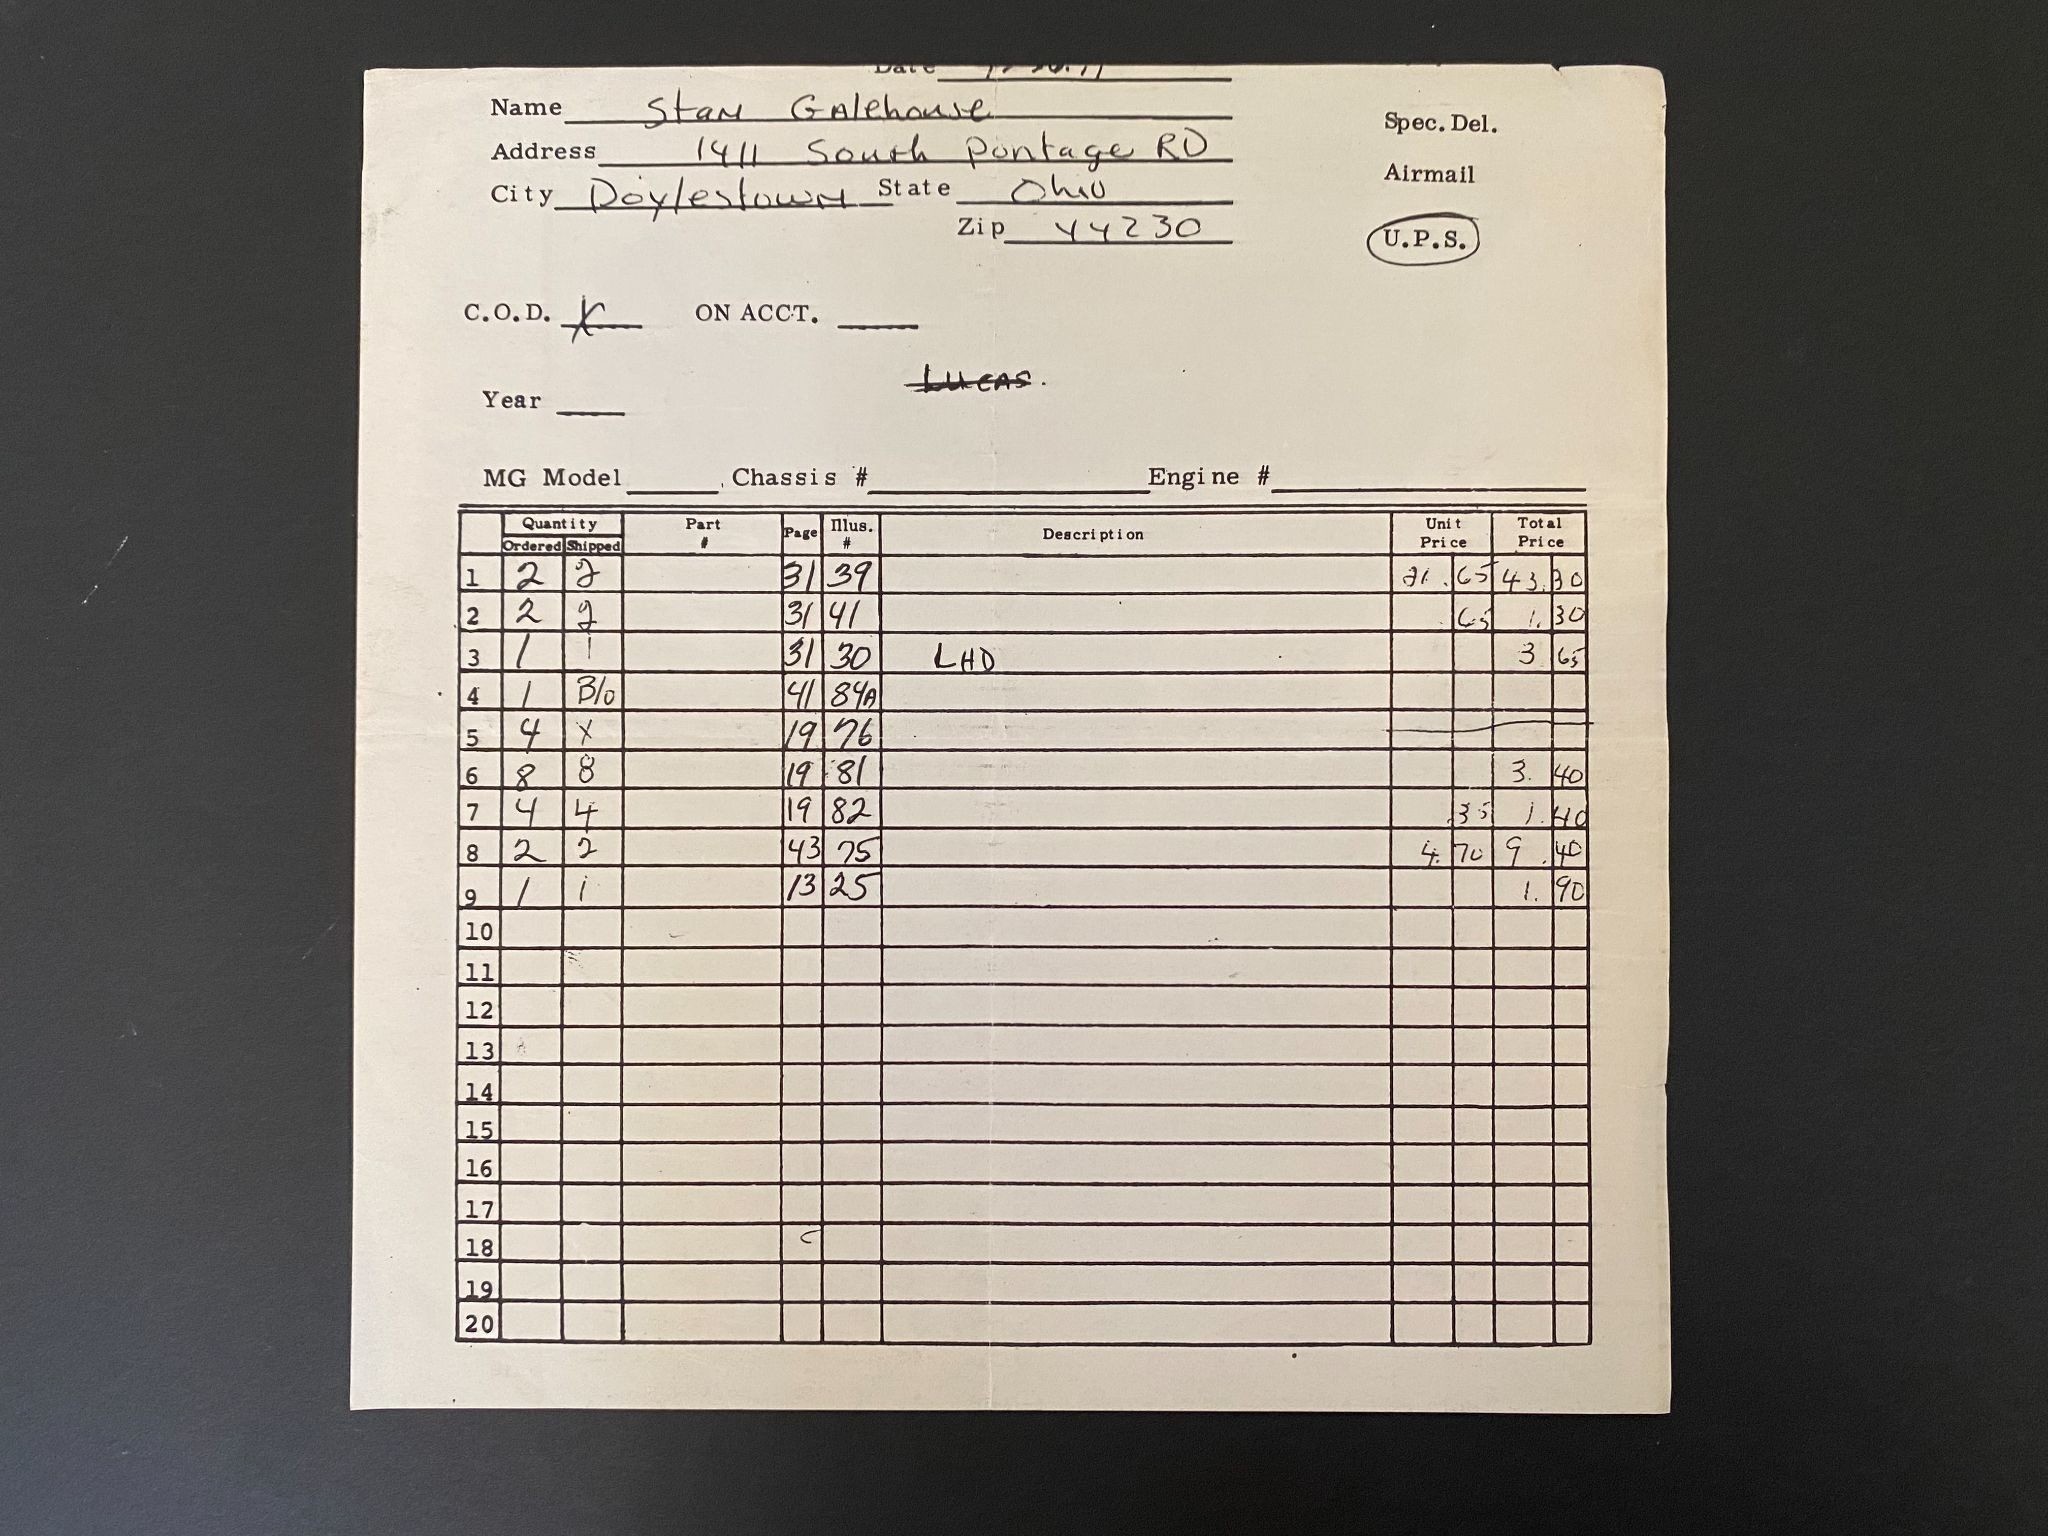 Date
Name Stan Galehouse
Spec. Del.
Address 1411 South Pontage RD
Airmail
City Doylestown State Ohio
Zip 44230
U.P.S.
C.O.D. X ON ACCT.
LUCAS.
Year
MG Model Chassis # Engine #
Quantity Ordered Shipped Part # Page Illus. # Description Unit Price Total Price
1 2 2 31 39 21.65 43.30
2 2 2 31 41 65 1.30
3 1 1 31 30 LHD 3 65
4 1 B/o 41 84A
5 4 X 19 76
6 8 8 19 81 3.40
7 4 4 19 82 .35 1.40
8 2 2 43 75 4.70 9.40
9 1 1 13 25 1.90
10
11
12
13
14
15
16
17
18
19
20